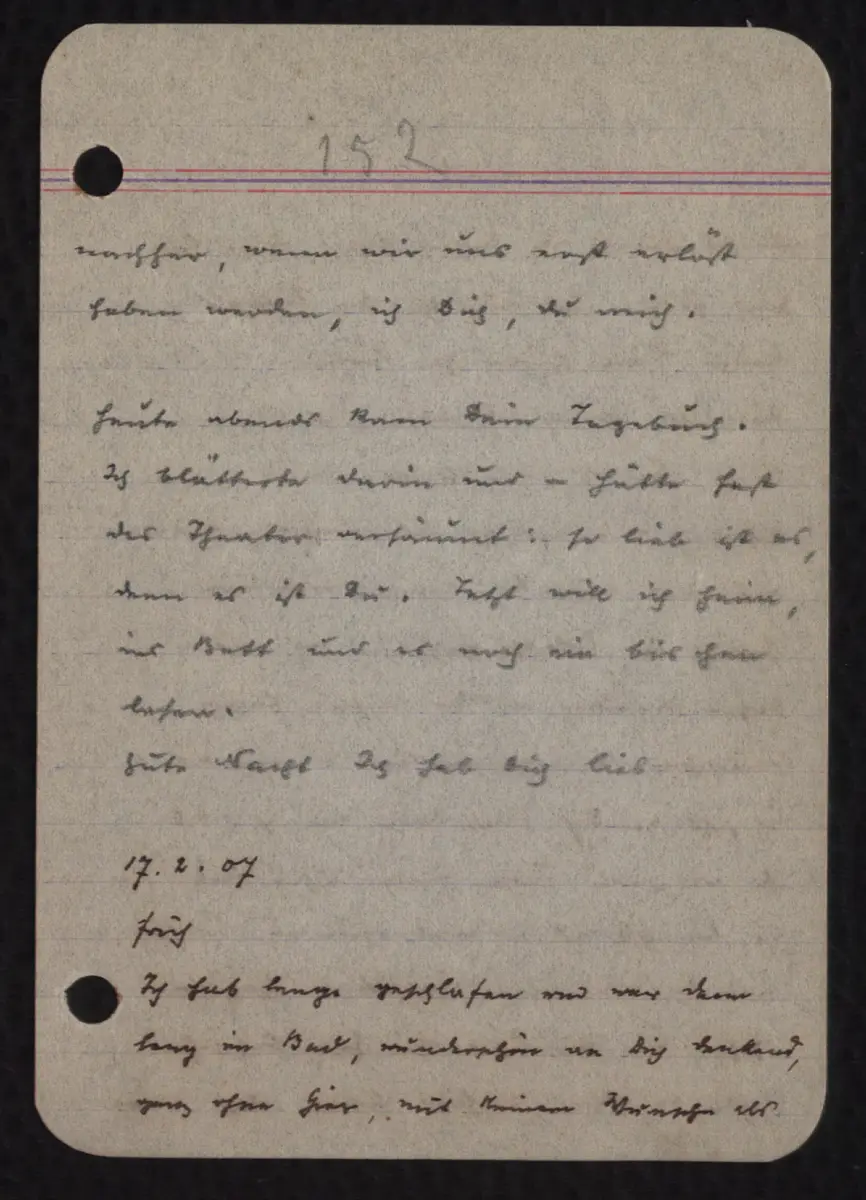 152
nachher, wenn wir uns erst erlöst
haben werden, ich Dich, du mich.
Heute abends kam Dein Tagebuch.
Ich blätterte darin und – hätte fast
das Theater versäumt: so lieb ist es,
denn es ist Du. Jetzt will ich heim,
ins Bett und es noch ein bis chen
lesen.
Gute Nacht Ich hab Dich lieb
17. 2. 07
früh
Ich hab lange geschlafen und war dann
lang im Bad, wunderschön an Dich denkend,
ganz ohne Gier, mit keinem Wunsche als